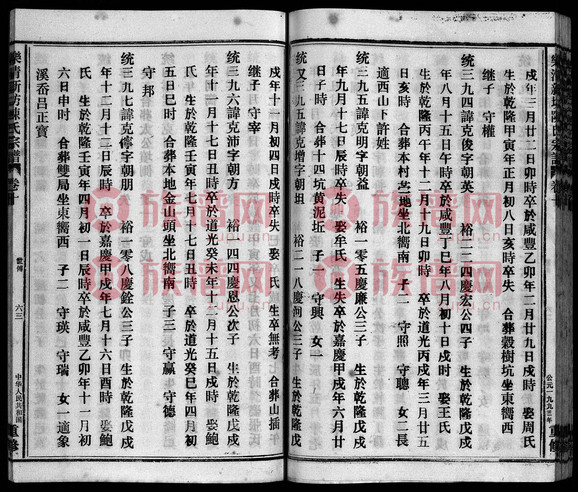 樂清新坊陳氏宗譜 卷十
戌年三月廿二日卯時卒於咸豐乙卯年二月廿九日戌時 娶周氏
生於乾隆甲寅年正月初八日亥時卒失 合葬穀樹坑坐東嚮西
繼子 守權
統三九四諱克俊字朝英 裕一二四慶宏公四子 生於乾隆戊戌
年八月十五日午時卒於咸豐丁巳年八月初十日戌時 娶王氏
生於乾隆丙午年十二月十九日卯時 卒於道光丙戌年三月廿五
日亥時 合葬本村
地坐北嚮南 子二 守照 守聰 女二長
適西山下許姓
統三九五諱克明字朝益 裕一零五慶廉公三子 生於乾隆戊戌
年九月十七日時卒失 娶牟氏 生失卒於嘉慶甲戌年六月廿
日戌時 合葬十四坑黃泥坵 子一 守興 女一
統又三九五諱克增字朝垣 裕二一八慶何公三子 生於乾隆戊
公元一九九三年 重修
戌年十一月初四日戌時卒失 娶氏 生卒無考 合葬山插
繼子 守宰
統三九六諱克沛字朝方 裕一四四慶恩公次子 生於乾隆戊戌
年十一月十七日丑時卒於道光癸未年十二月十五日戌時 娶鮑
氏 生於乾隆壬寅年七月十七日丑時 卒於道光癸巳年四月初
五日巳時 合葬本地金山頭坐北嚮南 子三 守贏 守德
守邦
統三九七諱克傳字朝朋 裕一零八慶銓公三子 生於乾隆戊戌
年十二月十二日辰時 卒於嘉慶甲戌年七月十六日酉時 娶鮑
氏 生於乾隆壬寅年四月初一日辰時卒於咸豐乙卯年十一月初
六日申時 合葬雙局坐東嚮西 子二 守瑛 守瑞 女一適象
溪岙呂正寶
樂清新坊陳氏宗譜 卷十
世傳
六三
中华人民共和国
重修
族谱网
zupu.cn
族谱网
zupu.cn